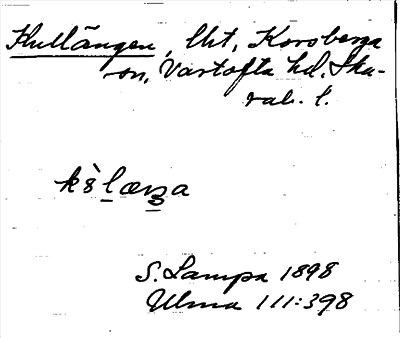 Kullängen, Uts, Korsberga
sn, Vartofta hd. Ska-
rab. l.
S. Lampa 1898
Ulma 111:398